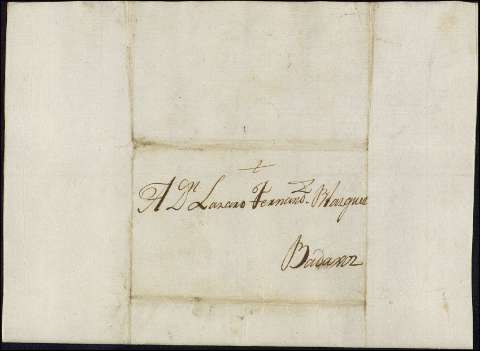 A Dn Lazaro Fernandz Blazquez
Badaxoz